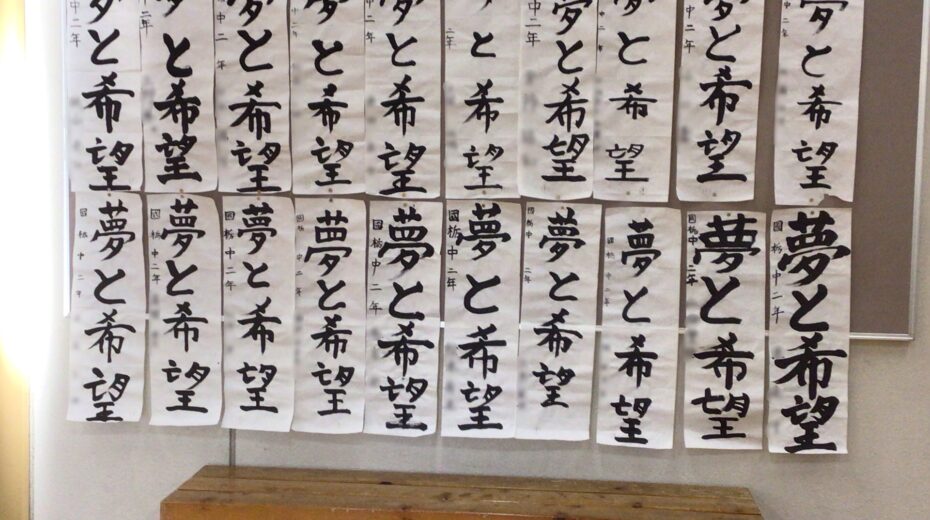 夢と希望
二年
夢と希望
中二年
夢と希望
中二年
夢と希望
中二年
夢と希望
二年
夢と希望
中二
夢と希望
中二年
夢と希望
中二年
夢と希望
二年
夢と希望
中二年
夢と希望
國栃中二年
夢と希望
國栃中二年
夢と希望
國栃中二年
夢と希望
國栃中二年
夢と希望
國栃中二年
夢と希望
國栃中二年
夢と希望
國栃中二年
夢と希望
國栃中二年
夢と希望
國栃中二年
夢と希望
國栃中二年